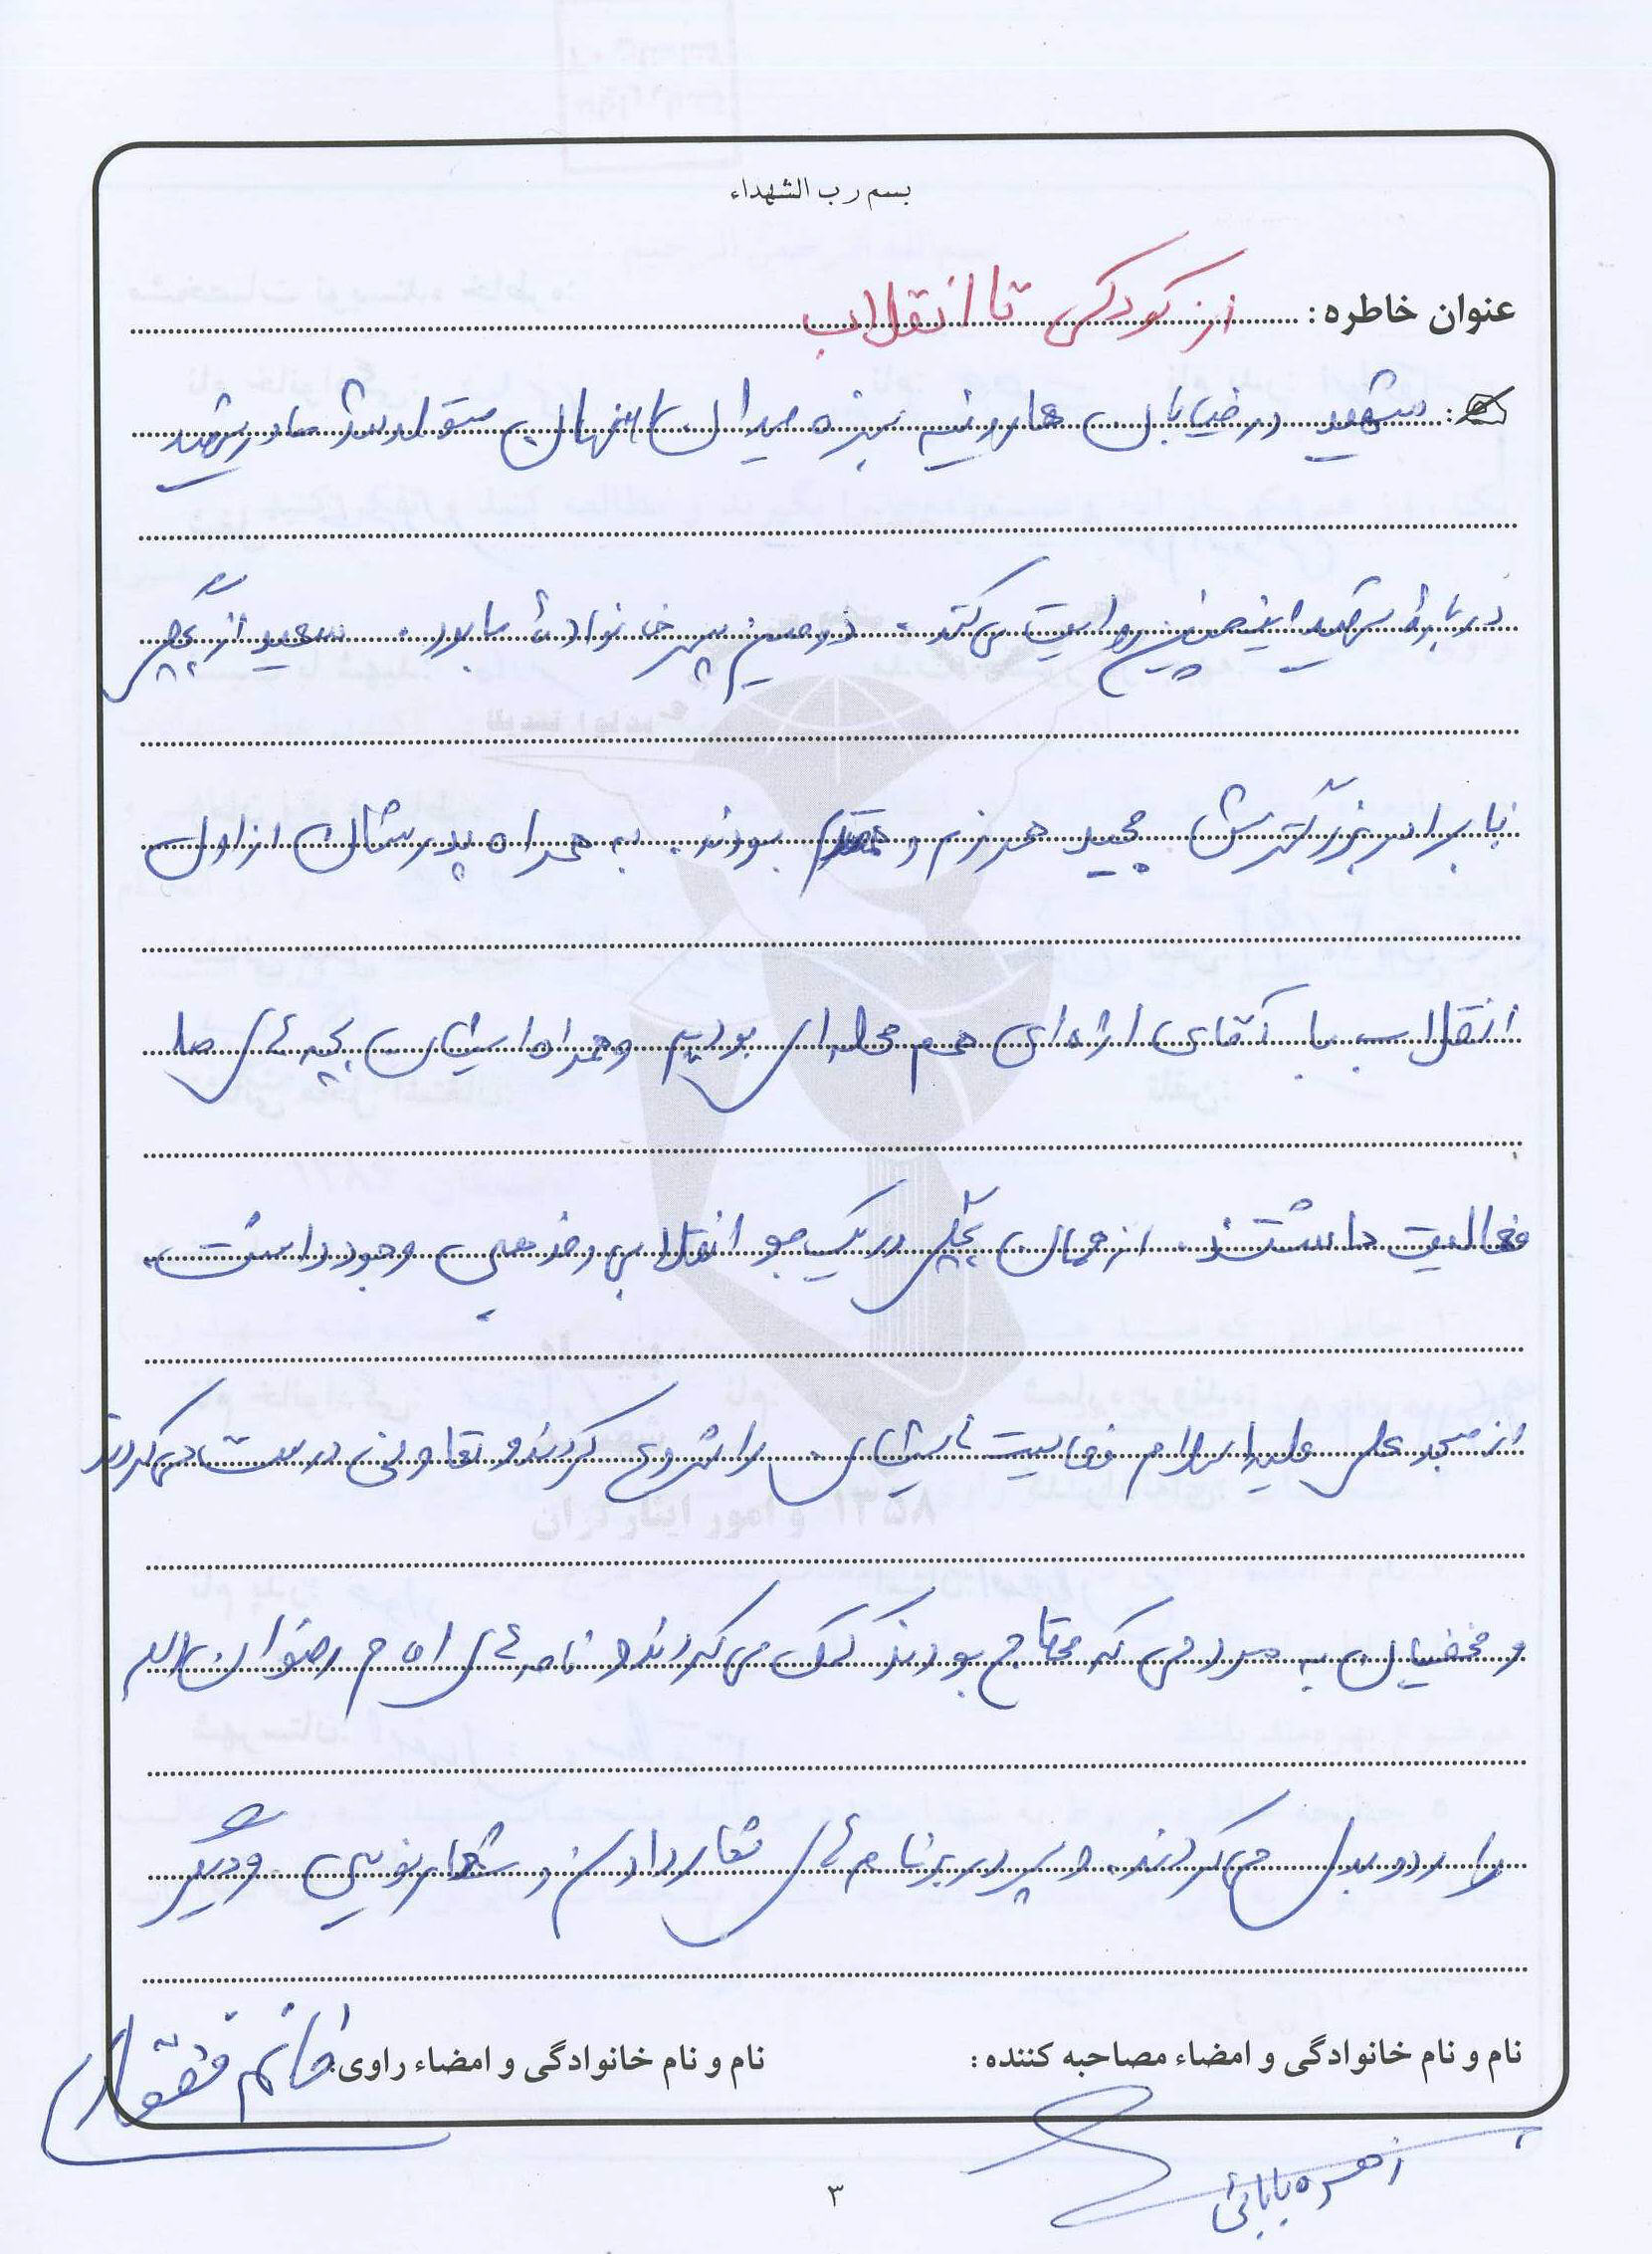 بسم رب الشهداء
عنوان خاطره: از کودکی تا انقلاب
شهید در خیابان هارونیه سبزه میدان اصفهان متولد شد مادر شهید
درباره شهید اینچنین روایت می‌کند. دومین پسر خانوادهٔ ما بود. سعید از بچگی
با برادر بزرگترش مجید همرزم و بودند. به همراه پدرشان از اول
انقلاب با آقای اژه‌ای هم محله‌ای بودیم و همراه ایشان بچه‌های ما
فعالیت داشتند. از همان بچگی در یک جو انقلابی و مذهبی وجود داشت.
از مسجد علی علیه‌السلام فعالیت‌هایشان را شروع کردند و تعاونی درست می‌کردند
و مخفیانه به مردمی که محتاج بودند کمک می‌کردند و نامه‌های امام رضوان الله
را رد و بدل می‌کردند. و سپس در برنامه‌های شعار دادن و شعارنویسی و دیگر
نام و نام خانوادگی و امضاء مصاحبه کننده:
نام و نام خانوادگی و امضاء راوی: خانم
زهره بابائی
۳